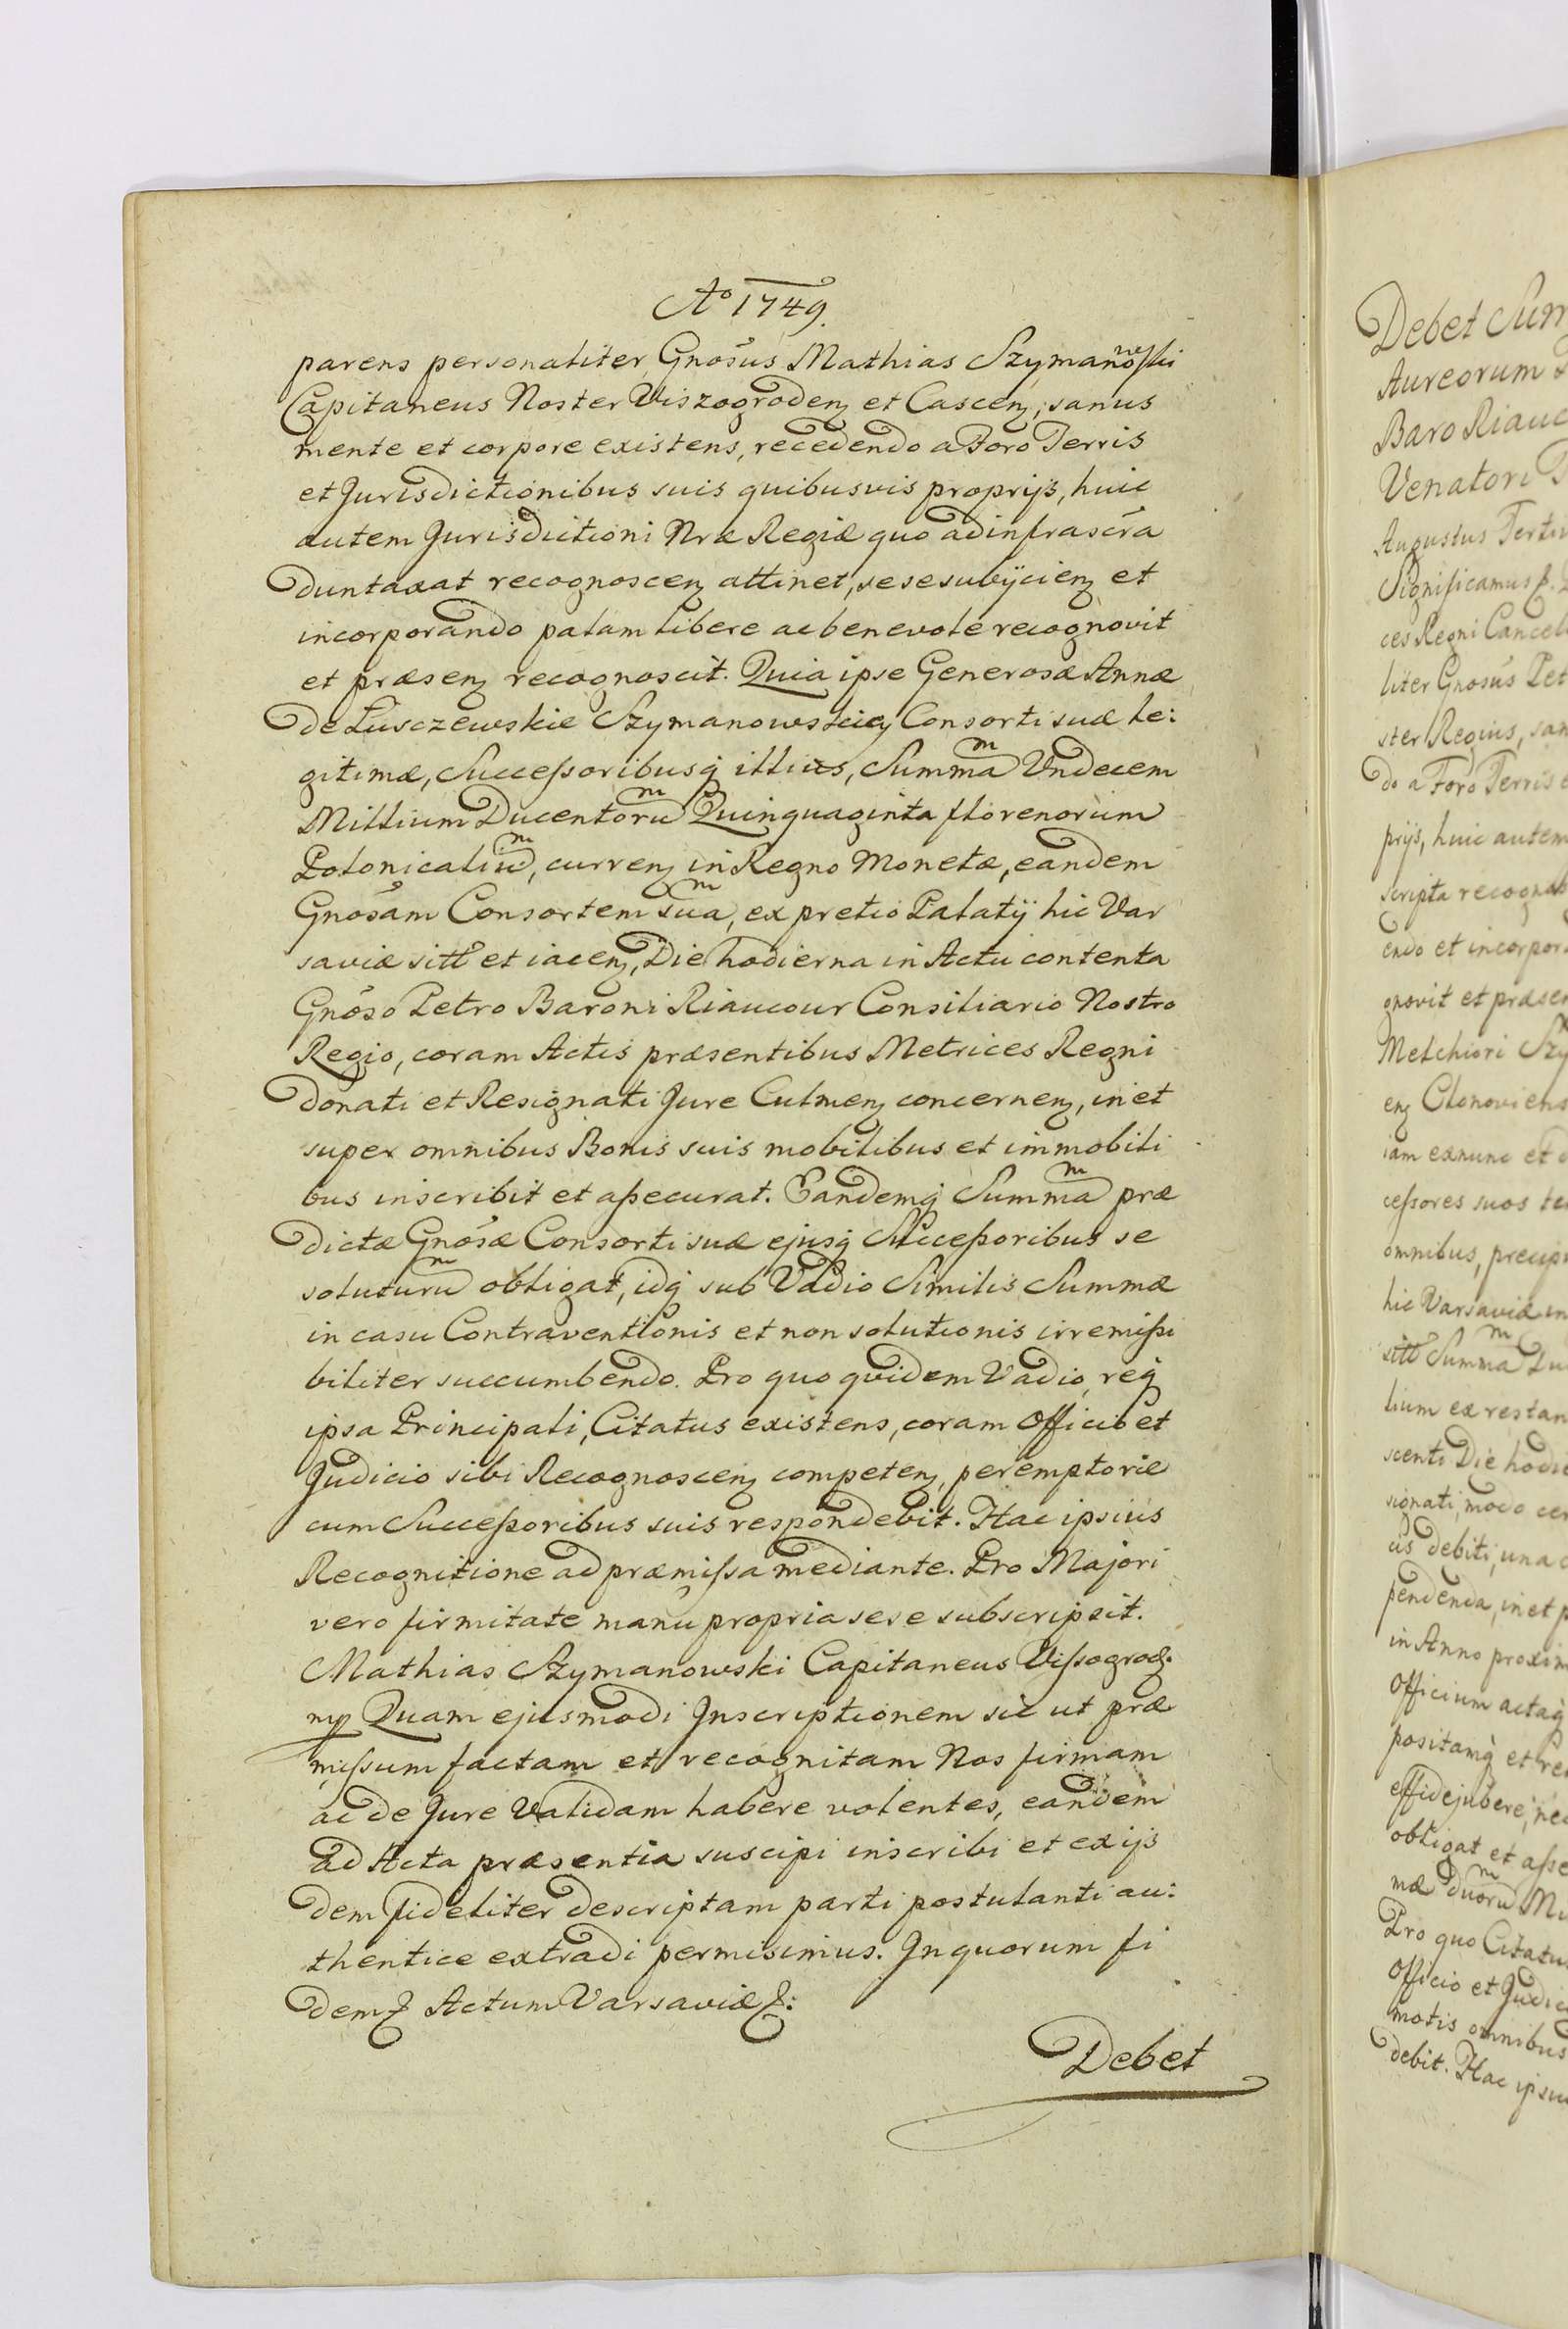 Aº 1749.
parens personaliter Gnosus Mathias Szymanowski
Capitaneus Noster Viszogroden et Cascen, sanus
mente et corpore existens, recedendo a Foro Terris
et Jurisdictionibus suis quibusvis proprijs, huic
autem Jurisdictioni Nræ Regiæ quo ad infrascra
duntaxat recognoscen attinet, sese subijcien et
incorporando palam libere ac benevole recognovit
et præsen recognoscit. Quia ipse Generosæ Annæ
de Lusczewskie Szymanowskiey Consorti suæ le:
gitimæ, Successoribusq illius, Summam Undecem
Millium Ducentorum Quinquaginta florenorum
Polonicalium, curren in Regno Monetæ, eandem
Gnosam Consortem suam, ex pretio Palatij hic Var
saviæ sitt et iacen, Die hodierna in Actu contenta
Gnoso Petro Baroni Riaucour Consiliario Nostro
Regio, coram Actis præsentibus Metrices Regni
donati et Resignati Jure Culmen concernen, in et
super omnibus Bonis suis mobilibus et immobili
bus inscribit et assecurat. Eandemq Summam præ
dictæ Gnosæ Consorti suæ ejusq Successoribus se
soluturum obligat, idq sub Vadio Similis Summæ
in casu Contraventionis et non solutionis irremissi
biliter succumbendo. Pro quo quidem Vadio, req
ipsa Principali, Citatus existens, coram Officio et
Judicio sibi Recognoscen competen, peremptorie
cum Successoribus suis respondebit. Hac ipsius
Recognitione ad præmissa mediante. Pro Majori
vero firmitate manu propria sese subscripsit.
Mathias Szymanowski Capitaneus Vissogrod.
mp Quam ejusmodi Inscriptionem sic ut præ
missum factam et recognitam Nos firmam
ac de Jure Validam habere volentes, eandem
ad Acta præsentia suscipi inscribi et ex ijs
dem fideliter descriptam parti postulanti au:
thentice extradi permisimus. In quorum fi
dem Actum Varsaviæ
Debet
Debet Sum
Aureorum
Baro Riauc
Venatori
Augustus Terti
Significamus
ces Regni Cancel
liter Gnosus Pet
ster Regius, san
do a Foro Terris
prijs, huic autem
scripta recogno
endo et incorpor
gnovit et præsen
Melchiori Szy
en Clonoviens
iam exnunc et
cessores suos
omnibus, precip
hic Varsaviæ in
sitt Summam
lium ex restan
scenti Die hodie
sionati, modo
debiti, una
pendenda, in et
in Anno proxim
Officium actaq
positamq et
effidejubere,
obligat et asse
mæ duorum Mi
Pro quo Citatu
Officio et Judic
motis omnibus
debit. Hac ipsiu